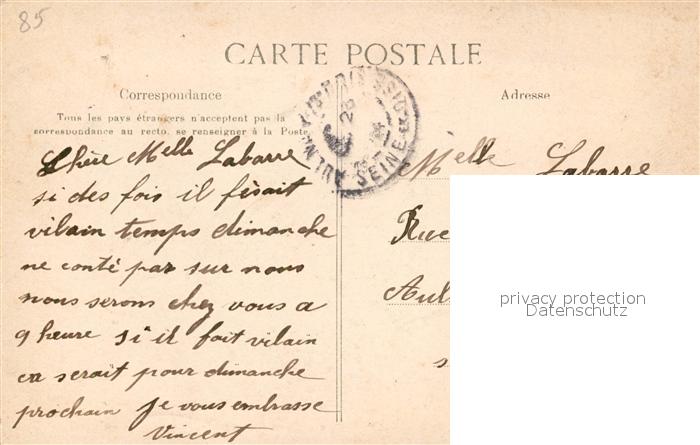 85
CARTE POSTALE
Correspondance
Adresse
Tous les pays étrangers n'acceptent pas la
correspondance au recto, se renseigner à la Poste
Chère Melle Labarre
si des fois il fèsait
vilain temps dimanche
ne conté pas sur nous
nous serons chez vous a
9 heure si il fait vilain
ca serait pour dimanche
prochain je vous embrasse
Vincent
Melle Labarre
Rue
Aul
privacy protection
Datenschutz
SEINE